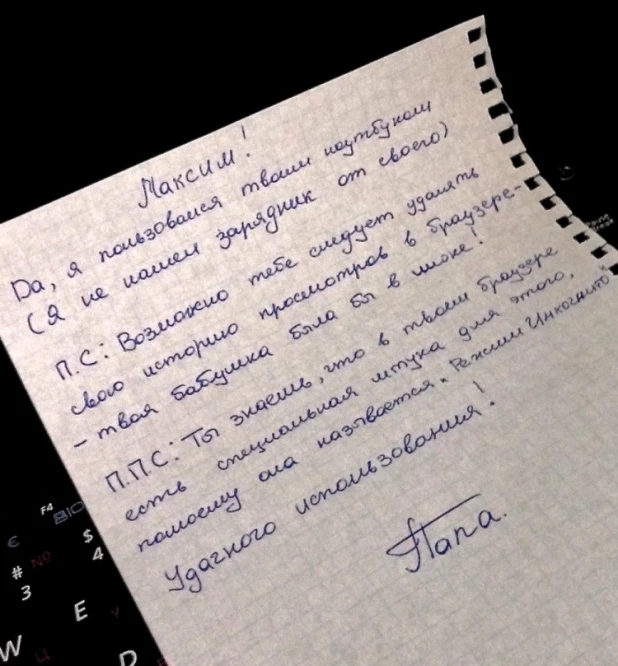 Максим!
Да, я пользовался твоим ноутбуком
(Я не нашел зарядник от своего)
П.С: Возможно тебе следует удалять
свою историю просмотров в браузере-
- твоя бабушка была бы в шоке!
П.П.С: Ты знаешь, что в твоем браузере
есть специальная штука для этого,
помоему она называется "Режим Инкогнито"
Удачного использования!
Папа.
F4
€
$
4
NO
#
3
E
У
W
Ц
D